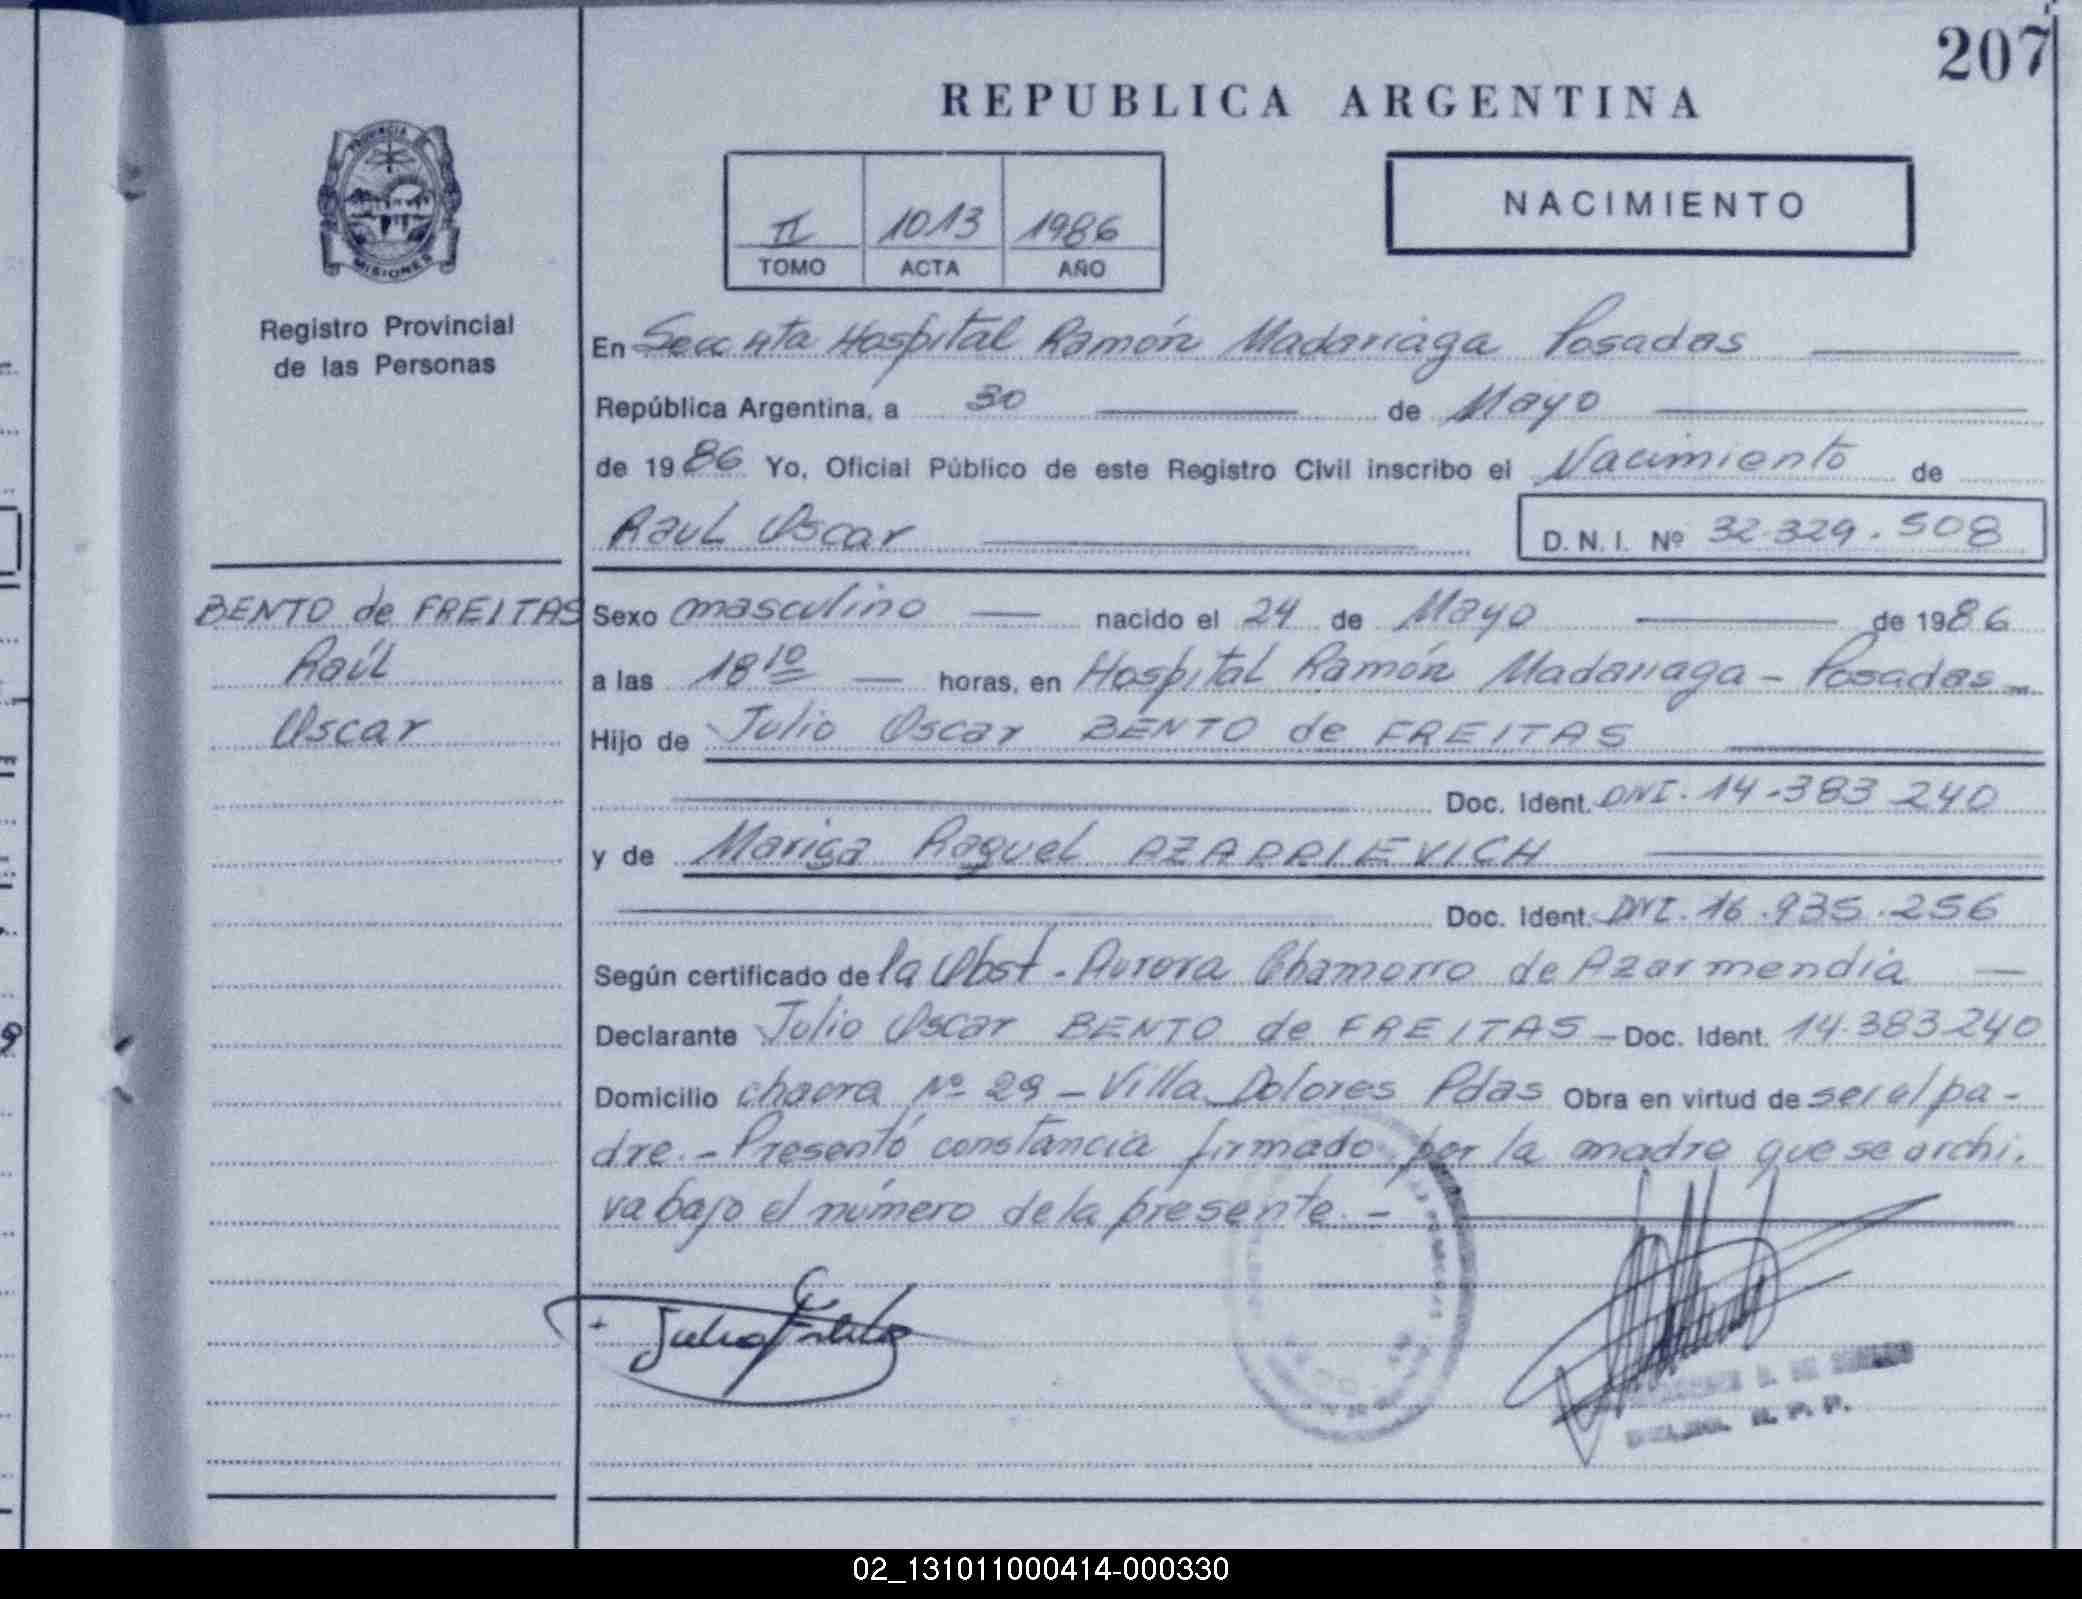 207
REPUBLICA ARGENTINA
PROVINCIA
MISIONES
Registro Provincial
de las Personas
II 1013 1986
TOMO ACTA AÑO
NACIMIENTO
En Secc 4ta Hospital Ramón Madariaga Posadas
República Argentina, a 30 de Mayo
de 1986 Yo, Oficial Público de este Registro Civil inscribo el Nacimiento de
Raul Oscar D. N. I. Nº 32.329.508
BENTO de FREITAS
Raúl
Oscar
Sexo masculino nacido el 24 de Mayo de 1986
a las 18 10 horas, en Hospital Ramón Madariaga - Posadas
Hijo de Julio Oscar BENTO de FREITAS
Doc. Ident. DNI. 14.383 240
y de Marisa Raquel AZARRIEVICH
Doc. Ident. DNI. 16.935.256
Según certificado de la Obst. Aurora Chamorro de Azarmendia
Declarante Julio Oscar BENTO de FREITAS - Doc. Ident. 14.383240
Domicilio chacra Nº 29 - Villa Dolores Pdas Obra en virtud de ser el pa-
dre. - Presentó constancia firmado por la madre que se archi.
va bajo el número de la presente. -
R. P. P.
02_131011000414-000330